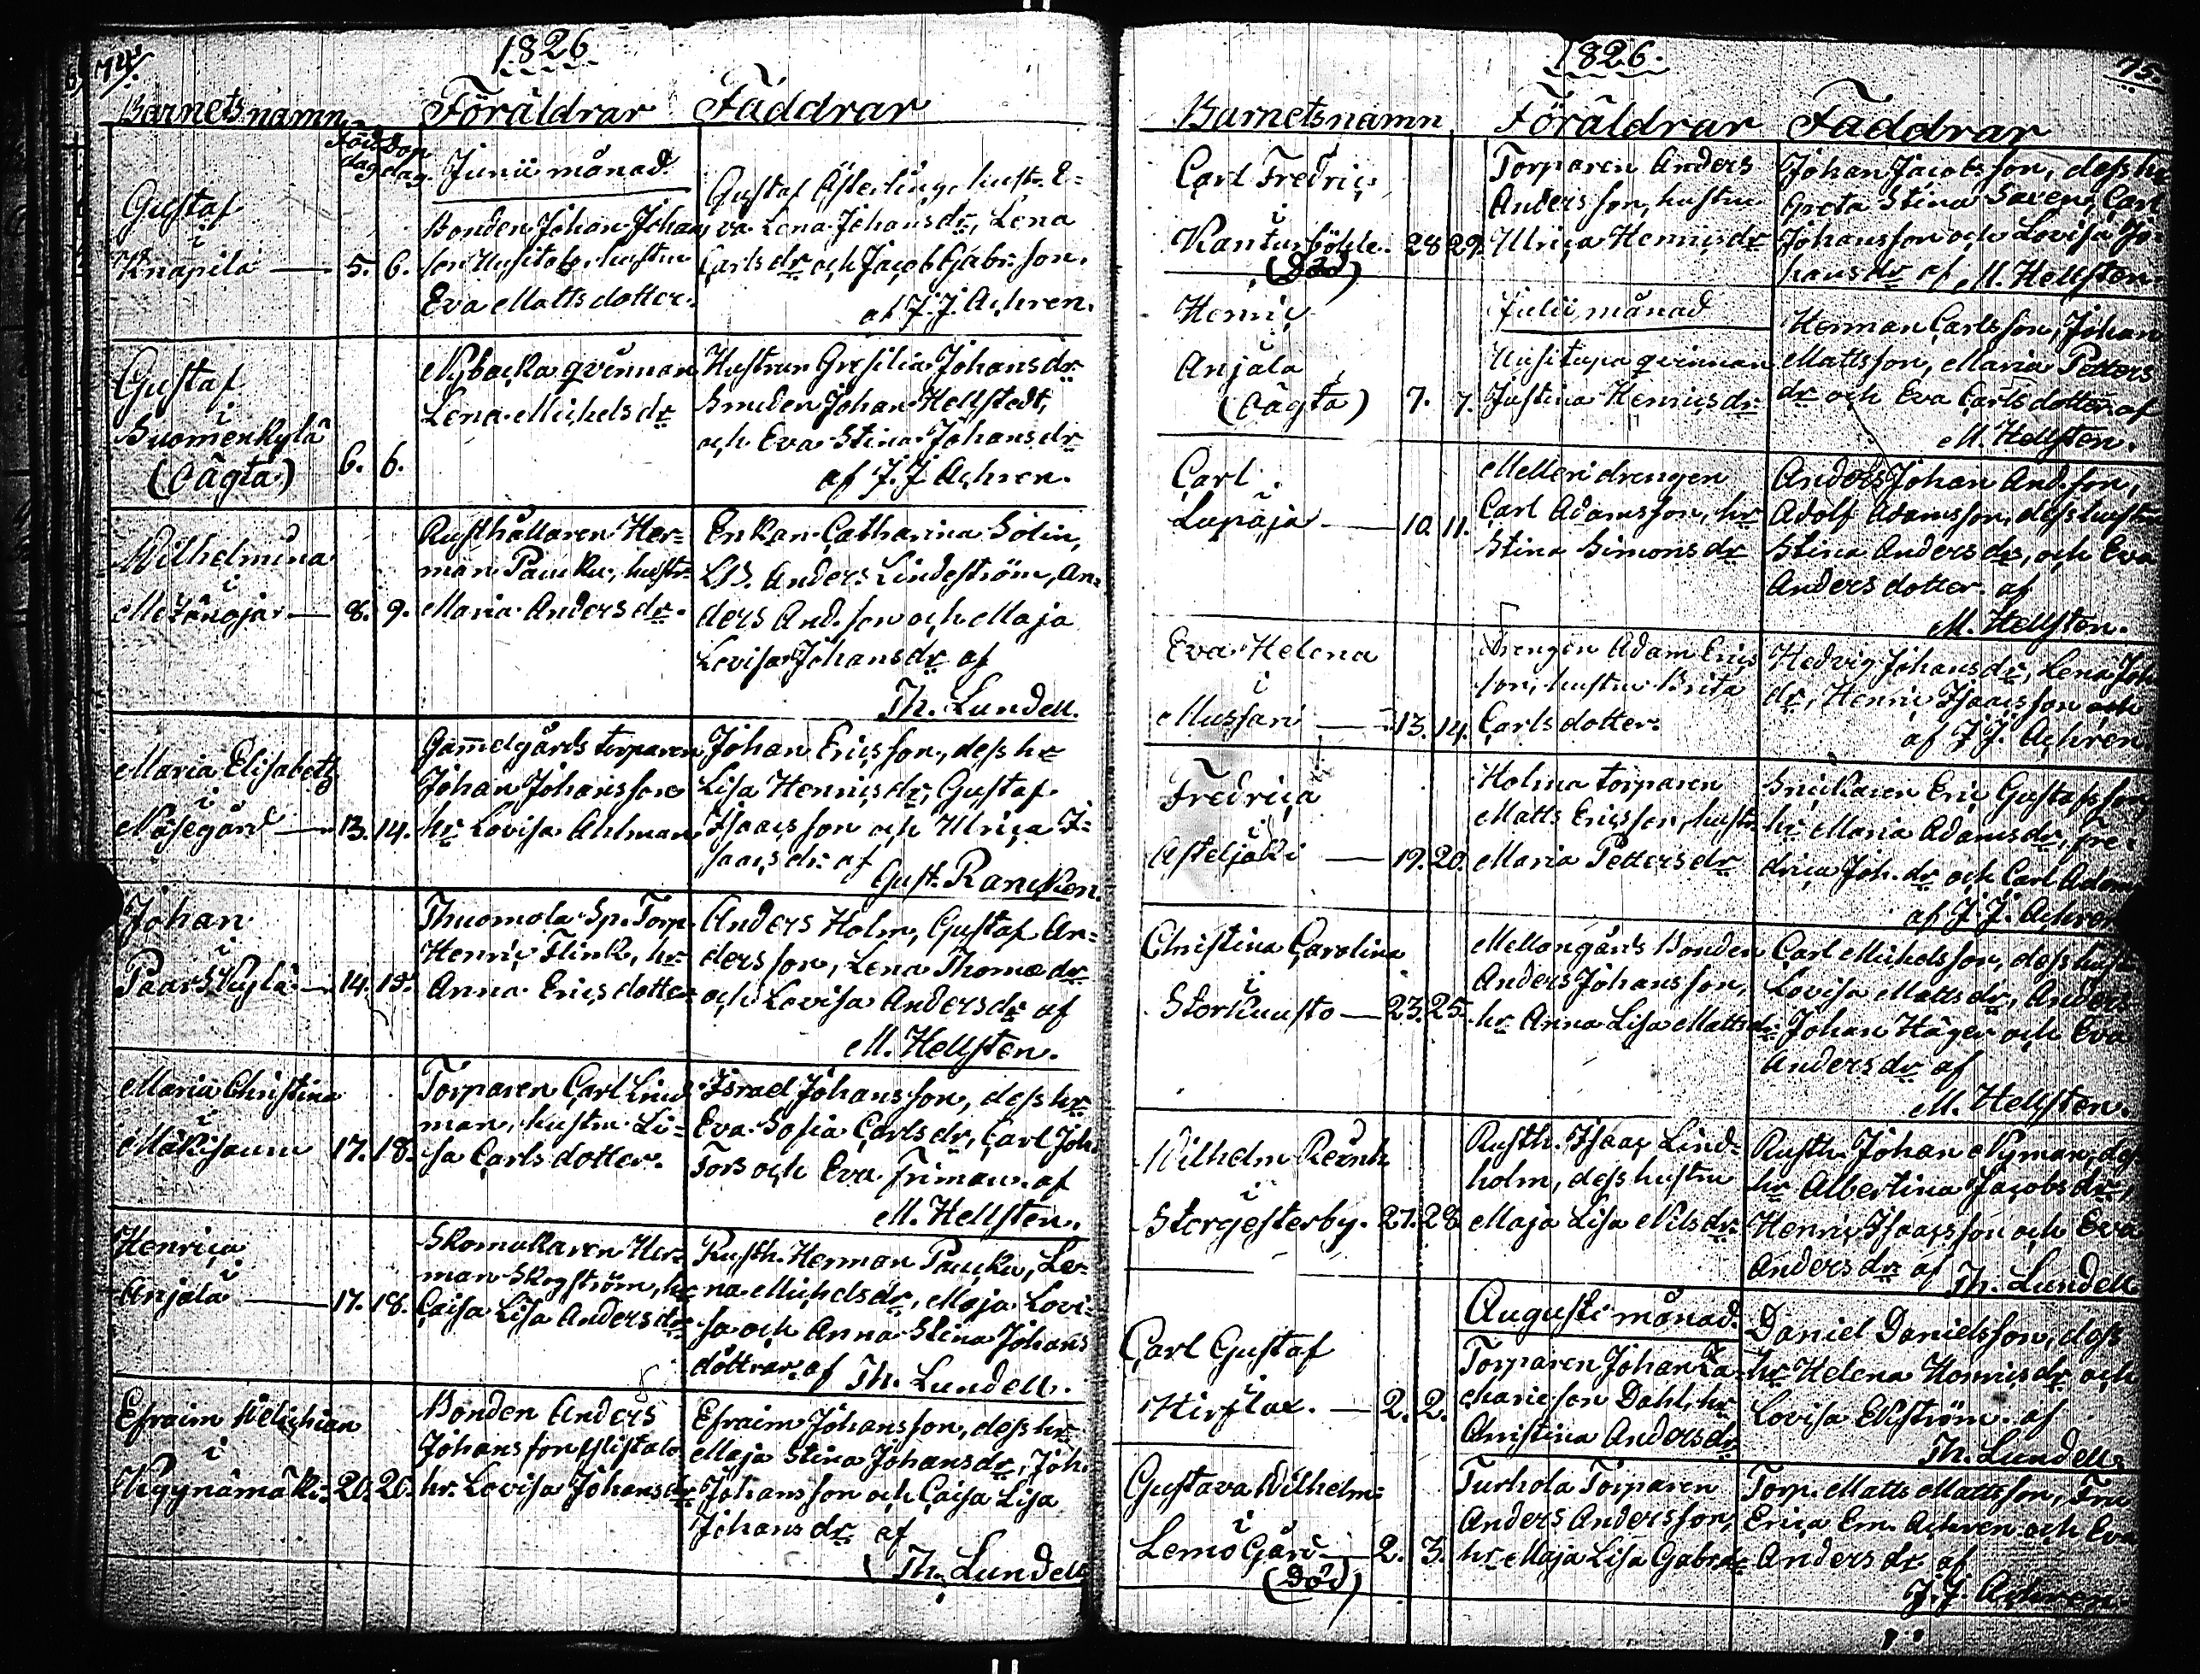 74.
1826
Barnets namn
Född dag
Dop dag.
Föräldrar
Faddrar
Junii månad.
Gustaf
i
Knapila — 5. 6.
Bonden Johan Johans
son Uusitalo, hustru
Eva Mattsdotter.
Gustaf Österling, hustr. E=
va Lena Johansdr, Lena
Carlsdr och Jacob Gabr.son.
af J. J. Achren.
Gustaf
i
Suomenkylä
(Oägta) 6. 6.
Nybacka qvinnan
Lena Michelsdr
Hustrun Gresilia Johansdr
Smeden Johan Hellstedt,
och Eva Stina Johansdr
af J. J. Achren.
Wilhelmina
i
Metzänojar — 8. 9.
Rusthållaren Her=
man Paucku, hustr.
Maria Andersdr.
Enkan Catharina Solin,
Anders Lindeström, An=
ders And.son och Maja
Lovisa Johansdr af
Th. Lundell.
Maria Elisabeth
i
Näsegård — 13. 14.
Gammelgårds torparen
Johan Johansson
hr Lovisa Ahlman
Johan Ericsson, dess hr
Lisa Henricsdr, Gustaf
Isaacsson och Ulrica I=
saacsdr. af
Gust. Rancken.
Johan
i
Paarskylä — 14. 15.
Thuomola Sp. Torp.
Henric Flink, hr
Anna Ericsdotter
Anders Holm, Gustaf An=
dersson, Lena Thomædr
och Lovisa Andersdr af
M. Hellsten.
Maria Christina
i
Mäkisauru 17. 18.
Torparen Carl Lind
man, hustru Li=
sa Carlsdotter.
Israel Johansson, dess hr
Eva Sofia Carlsdr, Carl Joh.
Tors och Eva Friman. af
M. Hellsten.
Henrica
i
Anjala — 17. 18.
Skomakaren Her=
man Skogström, hr
Caisa Lisa Andersdr
Rusth. Herman Paucku, Le=
na Michelsdr, Maja Lovi=
sa och Anna Stina Johans
döttrar af Th. Lundell.
Efraim Melichian
i
Kyynämäki 20. 20.
Bonden Anders
Johansson Ylistalo
hr Lovisa Johansdr
Efraim Johansson, dess hr
Maja Stina Johansdr, Joh.
Johansson och Caisa Lisa
Johansdr af
Th. Lundell
75.
1826.
Barnets namn
Föräldrar
Faddrar
Carl Fredric
i
Kanturböhle. 28 29.
(Död)
Torparen Anders
Andersson, hustru
Ulrica Henricsdr
Johan Jacobsson, dess hr
Greta Stina Saxen, Carl
Johansson och Lovisa Jo=
hansdr af M. Hellsten.
Julii månad
Henric
i
Anjala
(Oägta) 7. 7.
Uusitupa qvinnan
Justina Henricsdr
Herman Carlsson, Johan
Mattsson, Maria Petters
dr och Eva Carlsdotter af
M. Hellsten.
Carl
i
Lupaja — 10. 11.
Melleri drengen
Carl Adamsson, hr
Stina Simonsdr
Anders Johan And.son,
Adolf Adamsson, dess hustru
Stina Andersdr, och Eva
Andersdotter. af
M. Hellsten.
Eva Helena
i
Mussari — 13. 14.
Drengen Adam Erics
son, hustru Brita
Carlsdotter.
Hedvig Johansdr, Lena Joh
dr, Henric Isaacsson och
af J. J. Achren.
Fredrica
i
Asteljoki — 19. 20.
Holma torparen
Matts Ericsson, hustr.
Maria Pettersdr
Snickaren Eric Gustafsson,
hr Maria Adamsdr, Fre=
drica Joh.dr och Carl Adams
af J. J. Achren
Christina Carolina
i
Storkuusto — 23. 25.
Mellangårds Bonden
Anders Johansson,
hr Anna Lisa Mattsdr
Carl Michelsson, dess hustr
Lovisa Mattsdr, Anders
Johan Häger och Eva
Andersdr af
M. Hellsten.
Wilhelm Reinh.
i
Storgesterby. 27. 28.
Rusth. Isaac Lind=
holm, dess hustru
Maja Lisa Nilsdr
Rusth. Johan Nyman, dess
hr Albertina Jacobsdr,
Henric Isaacsson och Eva
Andersdr af Th. Lundell
Augusti månad.
Carl Gustaf
i
Hirslax. — 2. 2.
Torparen Johan Za=
chariæson Dahl, hr
Christina Andersdr
Daniel Danielsson, dess
hr Helena Henricsdr och
Lovisa Enström. af
Th. Lundell
Gustava Wilhelm=
i
Lemo Gård — 2. 3.
(Död)
Turhola Torparen
Anders Andersson,
hr Maja Lisa Gabr.dr
Torp. Matts Mattsson, Fru
Erica Em. Achren och Eva
Andersdr af
J. J. Achren.